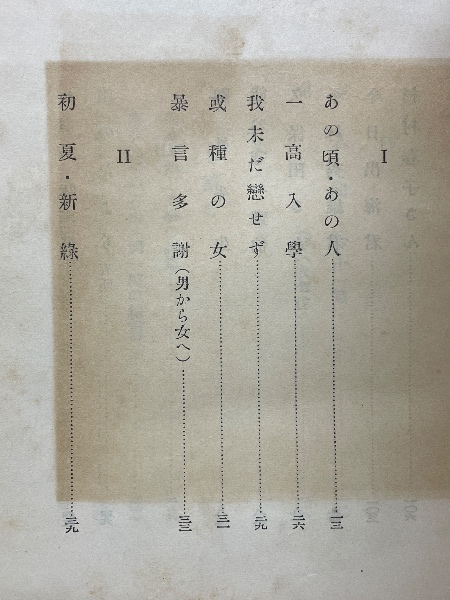 I
あの頃・あの人……一三
一高入學……二六
我未だ戀せず……二九
或種の女……三一
暴言多謝(男から女へ)……三三
II
初夏・新綠……三九